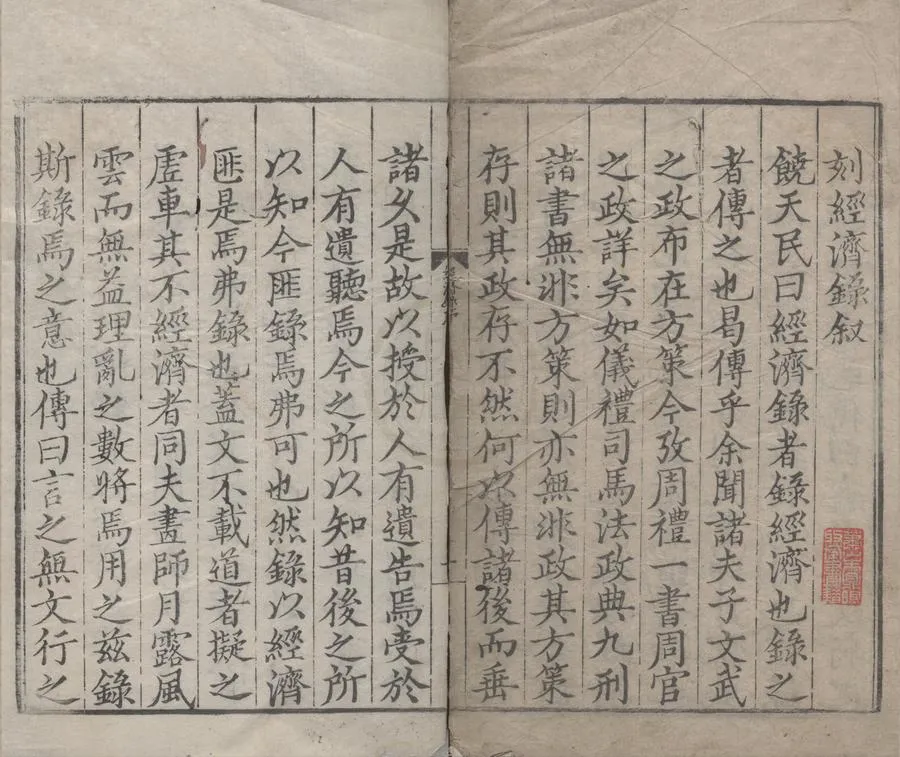 刻經濟錄叙
饒天民曰經濟錄者錄經濟也錄之
者傳之也曷傳乎余聞諸夫子文武
之政布在方策今攷周禮一書周官
之政詳矣如儀禮司馬法政典九刑
諸書無非方策則亦無非政其方策
存則其政存不然何以傳諸後而垂
諸久是故以授於人有遺告焉受於
人有遺聽焉今之所以知昔後之所
以知今匪錄焉弗可也然錄以經濟
匪是焉弗錄也蓋文不載道者擬之
虛車其不經濟者同夫畫師月露風
雲而無益理亂之數將焉用之兹錄
斯錄焉之意也傳曰言之無文行之